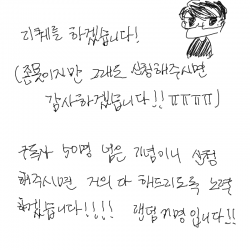 리퀘를 하겠습니다!
(존못이지만 그래도 신청해주시면
감사하겠습니다!! ㅠㅠㅠㅠ)
구독자 50명 넘은 기념이니 신청
해주시면 거의 다 해드리도록 노력
하겠습니다!!!! 랜덤 지명입니다!!